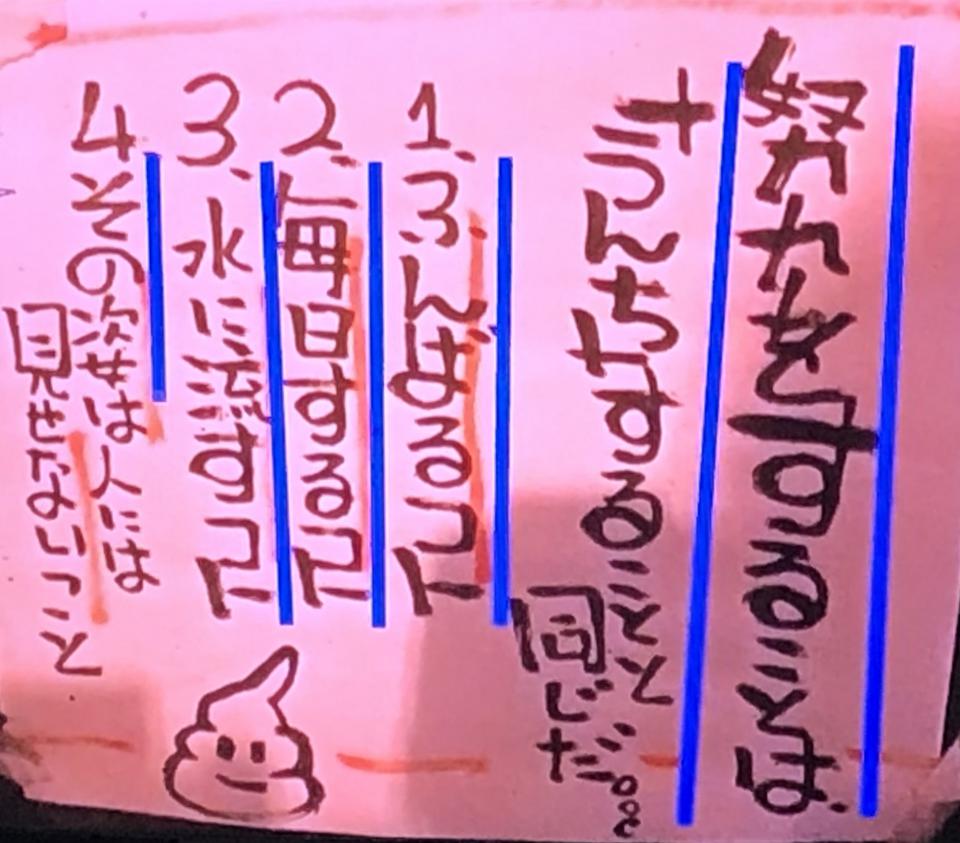 努力をすることは、
十うんちすることと
同じだ。
1.ふんばるコト
2.毎日するコト
3.水に流すコト
4.その姿は人には
見せないこと